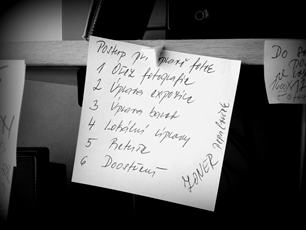 Postup při úpravě fotek
1 Ořez fotografie
2 Úprava expozice
3 Úprava barev
4 Lokální úpravy
5 Retuše
6 Doostření
ZONER
Do